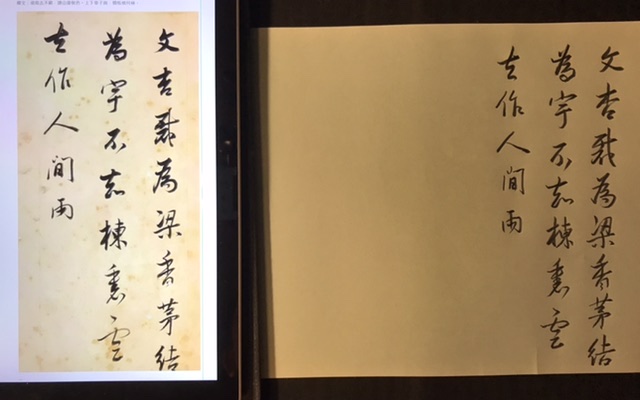 文杏裁為梁香茅結
為宇不知棟裏雲
去作人間雨
文杏裁為梁香茅結
為宇不知棟裏雲
去作人間雨